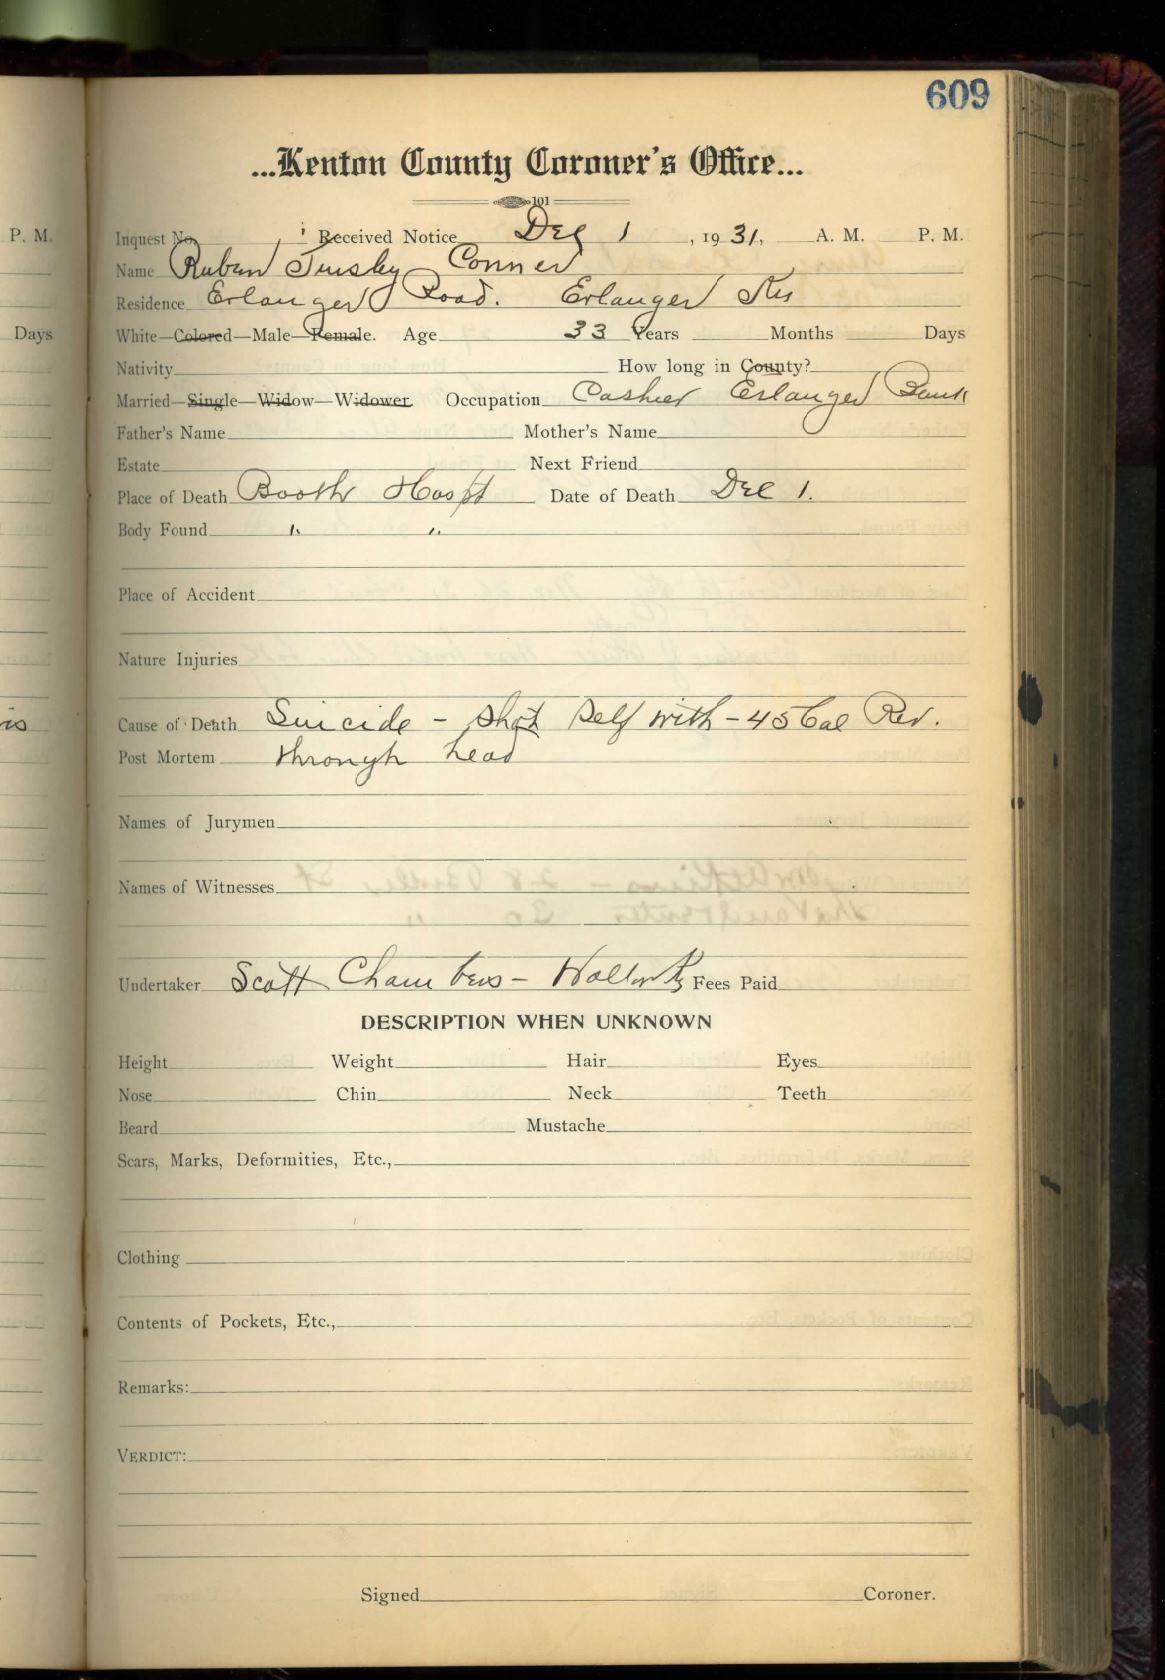 609
...Kenton County Coroner's Office...
101
P. M.
Inquest No. Received Notice Dec 1, 1931, A. M. P. M.
Name Ruben Tinsley Conner
Residence Erlanger Road. Erlanger Ky
Days
White—Colored—Male—Female. Age 33 Years Months Days
Nativity How long in County?
Married—Single—Widow—Widower Occupation Cashier Erlanger Bank
Father's Name Mother's Name
Estate Next Friend
Place of Death Booth Hospt Date of Death Dec 1.
Body Found " "
Place of Accident
Nature Injuries
is
Cause of Death Suicide - Shot Self with - 45 Cal Rev.
Post Mortem through head
Names of Jurymen
Names of Witnesses
Undertaker Scott Chambers - Walton Ky Fees Paid
DESCRIPTION WHEN UNKNOWN
Height Weight Hair Eyes
Nose Chin Neck Teeth
Beard Mustache
Scars, Marks, Deformities, Etc.,
Clothing
Contents of Pockets, Etc.,
Remarks:
VERDICT:
Signed Coroner.